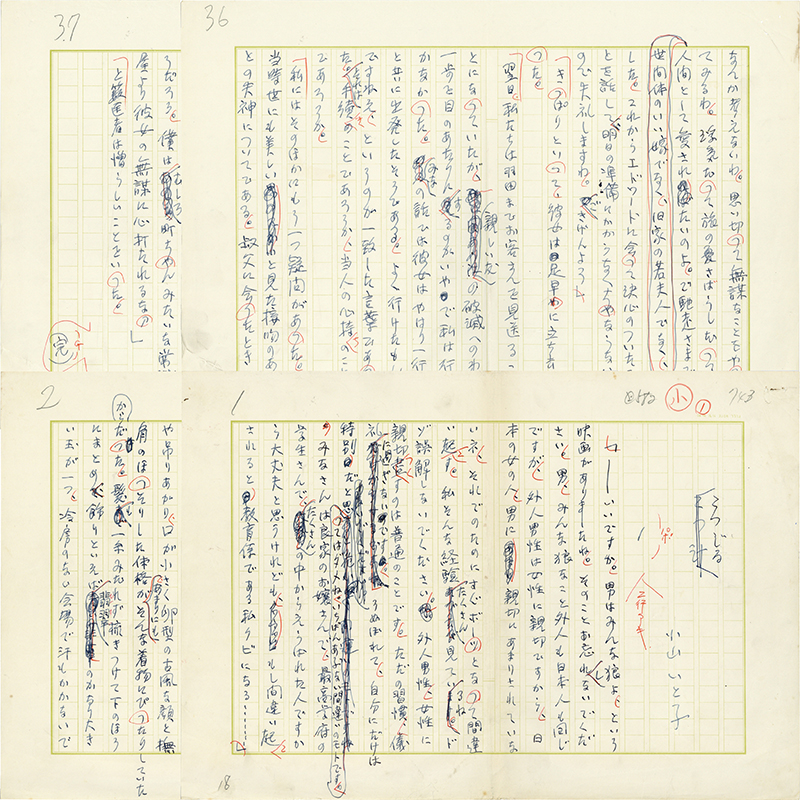 36
なんか考えないわ。思い切って無謀なことをや
てみるわ。浮気だって旅の憂さばらしだって
人間として愛されたいのよ。
世間体のいい嫁でなく、旧家の若夫人でなく
した。これからエドワードに会って決心のついたこ
とを話して明日の準備にかからなくちゃならない
ので失礼しますわ。ごきげんよろし
きっぱりといって、彼女は足早に立ち去
った。
翌日、私たちは羽田までお客さんを見送るこ
とになっていたが、親しい友の破滅への
一歩を目のあたり見るのがいやで私は行
かなかった。の話では彼女はやはり一行
と共に出発したそうである。よく行けたもん
ですねえ、というのが一致した言葉であ
た。手続きのことであろうか、当人の心持のこ
であろうか。
私にはそのほかにもう一つ疑問があった。
当時世にも美しいと見た接吻のあ
との失神についてである。叔父に会ったとき
37
うだろう。僕はむしろ町ちゃんみたいな常
屋より彼女の無謀に心打たれるな」
と範疇者は憎らしいことをいった。
完
1
小
703
小山いと子
――いいですか。男はみんな狼よ、という
映画がありましたね。そのことお忘れないでくだ
さい。男はみんな狼なこと外人も日本人も同じ
ですが、外人男性は女性に親切ですから、日
本の女の人、男に親切にあまりされていな
い。それでのたのにすぐボーッとなって間違
い起す。私そんな経験たくさん見ているね。ド
ゾ誤解しないでください。外人男性、女性に
親切なのは普通のことです。ただの習慣、儀
礼に過ぎないのです。うぬぼれて、自分にだけは
特別だと思
ってはダメね。いちばんあぶない間違いのモトですよ。
みなさんは良家のお嬢さんで、最高学府の
学生さんで、たくさんの中からえらばれた人ですか
ら大丈夫と思うけれども、もし間違い起
されると教育係である私クビになる……
18
2
や吊りあがり、口が小さく卵型の古風な顔と撫
肩のほっそりした体格がそんな着物にぴったりしていた
からだった。髪も一糸みだれず梳きつけて下のほう
にまとめ、飾りといえば翡翠のかなり大き
い玉が一つ。冷房のない会場で汗もかかないで